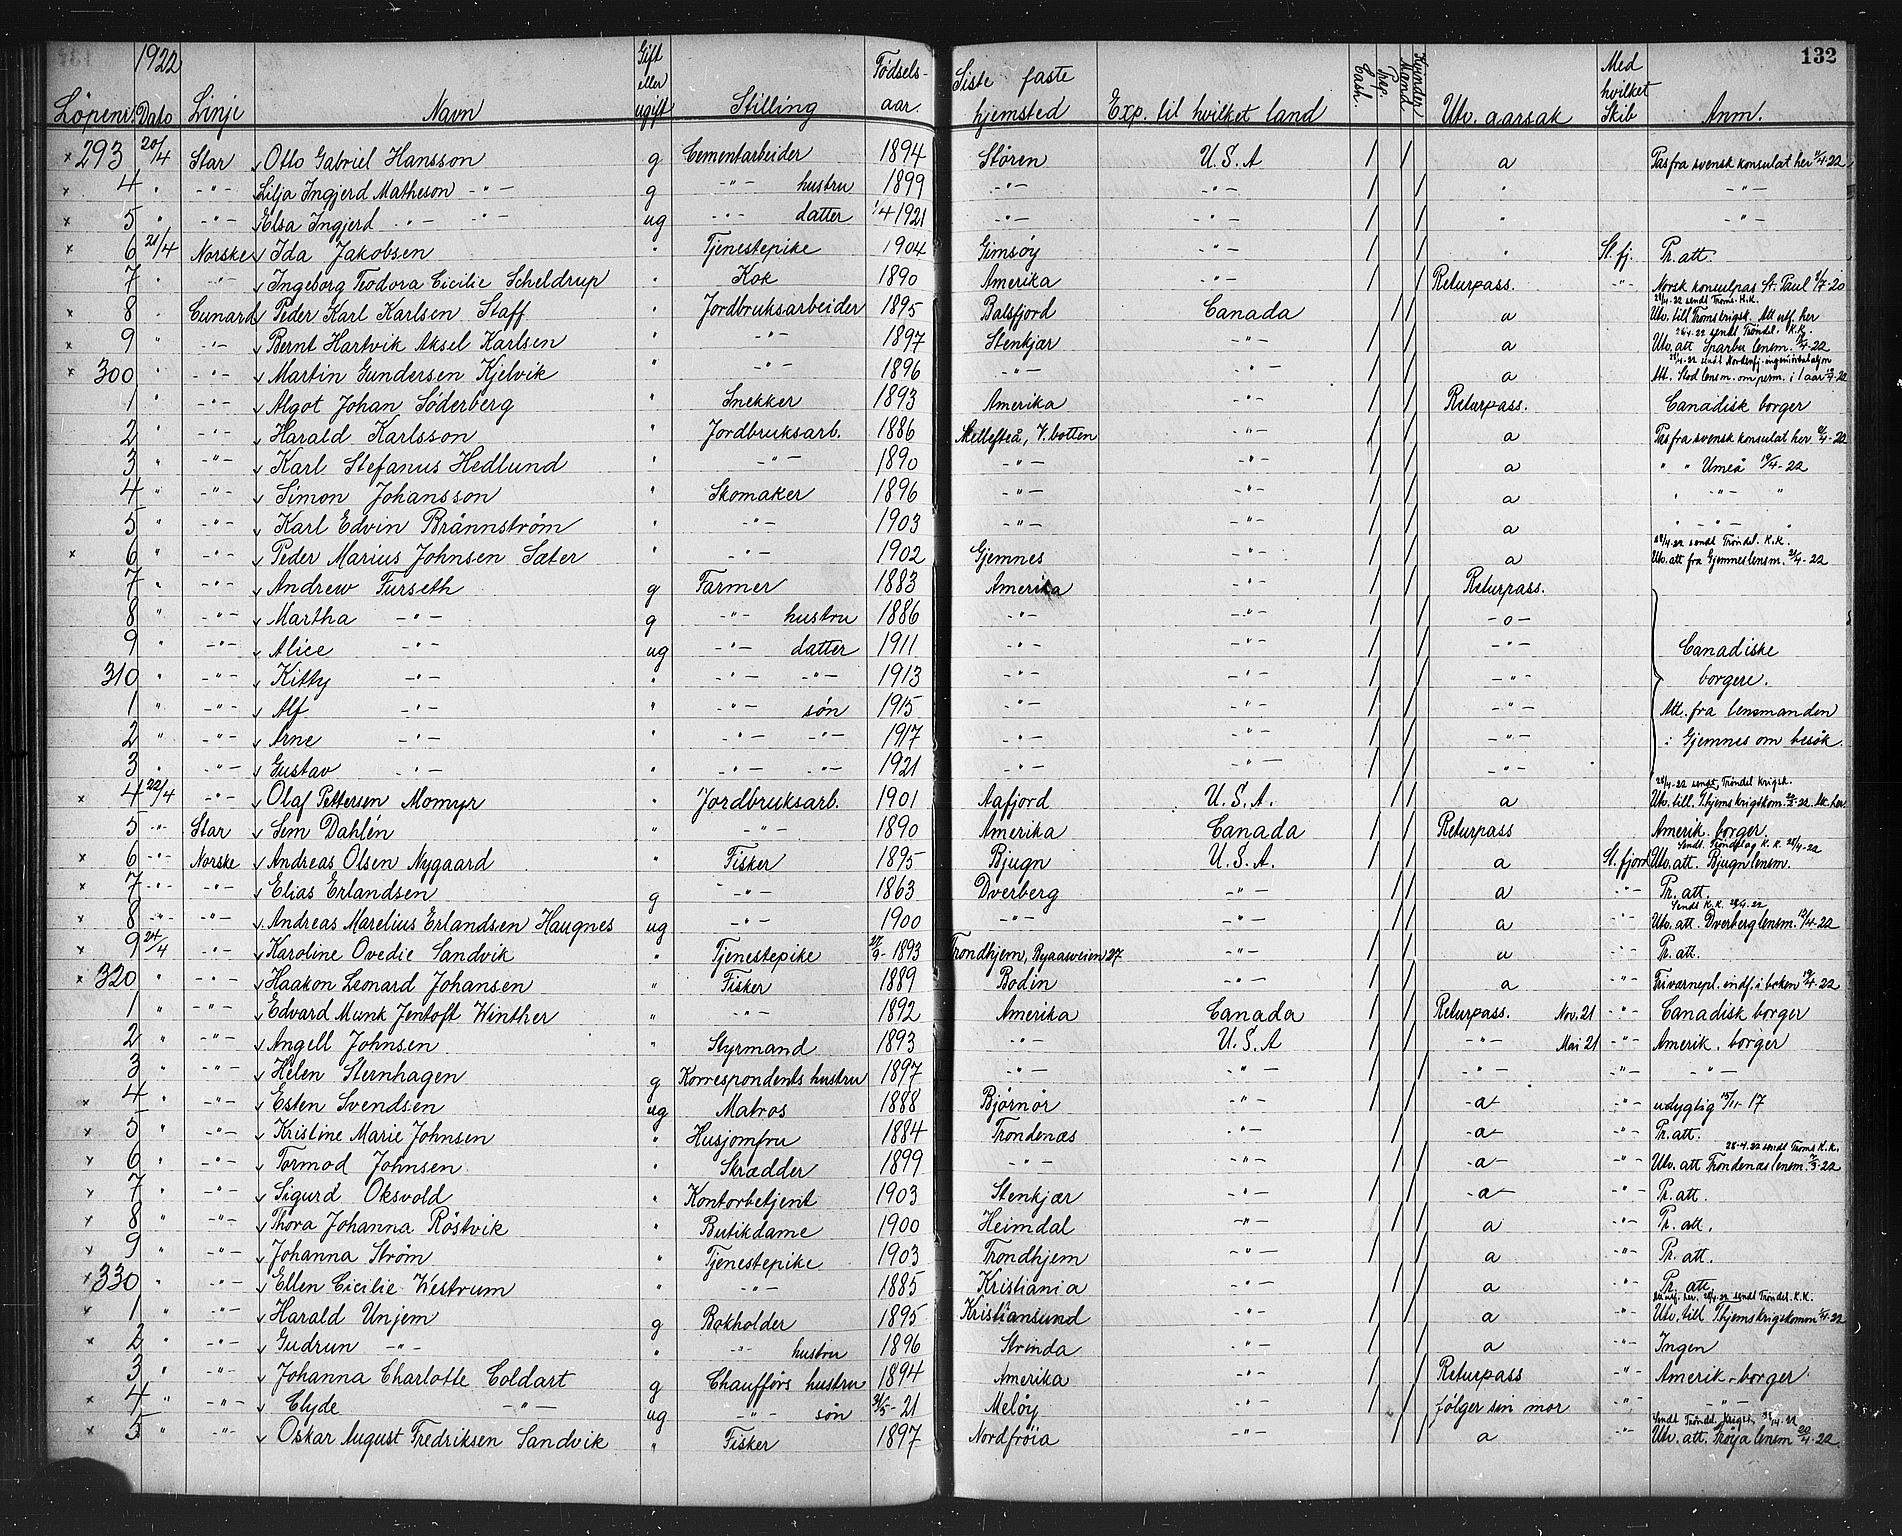 132
1922
Löpenr. Dato Linje Navn Gift eller ugift Stilling Fødselsaar. Siste faste hjemsted Exp. til hvilket land Cash. Prp. Mænd Kvinder Utv. aarsak Med hvilket Skib Anm.
× 293 20/4 Star Otto Gabriel Hansson g Cementarbeider 1894 Støren U.S.A / / a Pas fra svensk konsulat her 11/4-22
× 4 " -"- Lilja Ingjerd Matheson -"- g -"- hustru 1899 -"- -"- / / " -"-
× 5 " -"- Elsa Ingjerd -"- -"- ug -"- datter 1/4 1921 -"- -"- / / " -"-
× 6 21/4 Norske Ida Jakobsen " Tjenestepike 1904 Gimsöy -"- / / " St. fj. Pr. att.
7 " -"- Ingeborg Teodora Cicilie Scheldrup " Kok 1890 Amerika -"- / / Returpass. -"- Norsk konsulpas St. Paul 6/7-20
× 8 " Cunard Peder Karl Karlsen Staff " Jordbruksarbeider 1895 Balsfjord Canada / / a 29/4-22 sendt Troms. K.K. Utv. till Troms krigsk. Att utf. her
× 9 " -"- Bernt Hartvik Aksel Karlsen " -"- 1897 Stenkjær -"- / / a 26-4-22 sendt Tröndel. K.K. Utv. att Sparbu lensm. -22
× 300 " -"- Martin Gundersen Kjelvik " -"- 1896 -"- -"- / / a Att. Stod lensm. om perm. i 1 aar -22
1 " -"- Algot Johan Söderberg " Snekker 1893 Amerika -"- / / Returpass. Canadisk borger
2 " -"- Harald Karlsson " Jordbruksarb. 1886 Skellefteå, V. botten -"- / / a Pas fra svensk konsulat her -22
3 " -"- Karl Stefanus Hedlund " -"- 1890 -"- -"- / / a " " Umeå 19/4-22
4 " -"- Simon Johansson " Skomaker 1896 -"- -"- / / a " -"- "
5 " -"- Karl Edvin Brännström " -"- 1903 -"- -"- / / a " -"- "
× 6 " -"- Peder Marius Johnsen Sæter " -"- 1902 Gjemnes -"- / / a 29/4-22 sendt Tröndel. K.K. Utv. att fra Gjemnes lensm. 21/4-22
7 " -"- Andrew Furseth g Farmer 1883 Amerika -"- / / Returpass.
8 " -"- Martha -"- g -"- hustru 1886 -"- -"- / / -"-
9 " -"- Alice -"- ug -"- datter 1911 -"- -"- / / -"- Canadiske
310 " -"- Kitty -"- " -"- -"- 1913 -"- -"- / / -"- borgere.
1 " -"- Alf -"- " -"- søn 1915 -"- -"- / / -"- Att. fra lensmanden
2 " -"- Arne -"- " -"- -"- 1917 -"- -"- / / -"- i Gjemnes om besök.
3 " -"- Gustav -"- " -"- -"- 1921 -"- -"- / / -"-
× 4 22/4 -"- Olaf Pettersen Momyr " Jordbruksarb. 1901 Aafjord U.S.A. / / a 28/4-22 sendt, Tröndel Krigsk. Utv. till. Thjems krigskom. -22 Att. her
5 -"- Star Sem Dahlén " -"- 1890 Amerika Canada / / Returpass Amerik. borger.
× 6 -"- Norske Andreas Olsen Nygaard " Fisker 1895 Bjugn U.S.A. / / a St. fjord Sendt. Tröndelag K.K. 28/4-22 Utv. att. Bjugn lensm.
× 7 -"- -"- Elias Erlandsen g -"- 1863 Dverberg -"- / / a -"- Pr. att.
× 8 -"- -"- Andreas Marelius Erlandsen Haugnes ug -"- 1900 -"- -"- / / a -"- Sendt K.K. 28/4-22 Utv. att. Dverberg lensm. 12/4-22
× 9 24/4 -"- Karoline Ovedie Sandvik " Tjenestepike 27/9-1893 Trondhjem, Byaasveien 27 -"- / / a -"- Pr. att.
× 320 " -"- Haakon Leonard Johansen " Fisker 1889 Bodin -"- / / a -"- Friværnepl. indf. i boken 19/4-22
1 " -"- Edvard Munk Jentoft Winther " -"- 1892 Amerika Canada / / Returpass. Nov. 21 -"- Canadisk borger
2 " -"- Angell Johnsen " Styrmand 1893 -"- U.S.A / / -"- Mai 21 -"- Amerik. borger
3 " -"- Helen Sternhagen g Korrespondents hustru 1897 -"- -"- / / -"- -"- -"-
× 4 " -"- Esten Svendsen ug Matros 1888 Bjørnør -"- / / -a- -"- udygtig 15/11-17
× 5 " -"- Kristine Marie Johnsen " Husjomfru 1884 Trondenæs -"- / / -a- -"- Pr. att.
× 6 " -"- Tormod Johnsen " Skrædder 1899 -"- -"- / / -a- -"- 28-4-22 sendt Troms K.K. Utv. att Trondenæs lensm. -22
× 7 " -"- Sigurd Oksvold " Kontorbetjent 1903 Stenkjær -"- / / -a- -"- Pr. att.
× 8 " -"- Thora Johanna Röstvik " Butikdame 1900 Heimdal -"- / / a -"- Pr. att.
× 9 " -"- Johanna Strøm " Tjenestepike 1903 Trondhjem -"- / / a -"- Pr. att.
× 330 " -"- Ellen Cicilie Westrum " -"- 1885 Kristiania -"- / / a -"- Pr. att.
× 1 " -"- Harald Unjem g Bokholder 1895 Kristiansund -"- / / a -"- her. 28/4-22 sendt Tröndel. K.K. Utv. till Thjems krigskomm -22
× 2 " -"- Gudrun -"- " -"- hustru 1896 Strinda -"- / / a -"- Ingen
3 " -"- Johanna Charlotte Coldart g Chaufförs hustru 1894 Amerika -"- / / Returpass -"- Amerik. borger
× 4 " -"- Clyde -"- ug -"- søn -21 Meløy -"- / / følger sin mor -"- -"-
× 5 " -"- Oskar August Fredriksen Sandvik " Fisker 1897 Nordfröia -"- / / a -"- Sendt Tröndel. Krigsk. -22 Utv. att. Fröya lensm 20/4-22